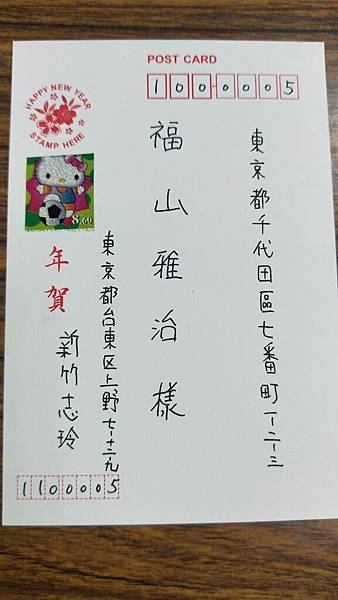 POST CARD
1000005
HAPPY NEW YEAR
STAMP HERE
8.00
東京都千代田區七番町一-二-三
福山雅治様
年賀
東京都台東区上野七-十三-九
新竹志玲
1100005